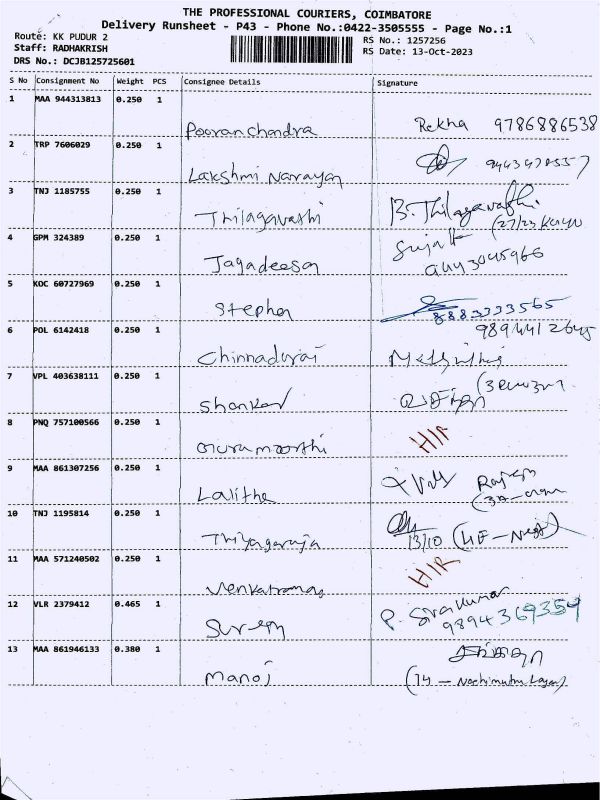 THE PROFESSIONAL COURIERS, COIMBATORE
Delivery Runsheet - P43 - Phone No.:0422-3505555 - Page No.:1
Route: KK PUDUR 2
Staff: RADHAKRISH
DRS No.: DCJB125725601
RS No.: 1257256
RS Date: 13-Oct-2023
S No Consignment No Weight PCS Consignee Details Signature
1 MAA 944313813 0.250 1
Pooranchandra Rekha 9786886538
2 TRP 7606029 0.250 1
Lakshmi Narayan
3 TNJ 1185755 0.250 1
Thilagavathi B. Thilagavathi
4 GPM 324389 0.250 1
Jagadeesan
5 KOC 60727969 0.250 1
Stephen 8883333565
6 POL 6142418 0.250 1 9894412645
Chinnadurai
7 VPL 403638111 0.250 1
Shankar
8 PNQ 757100566 0.250 1
Gurumoorthi H/R
9 MAA 861307256 0.250 1
Lalitha
10 TNJ 1195814 0.250 1
Thiyagaraja 13/10
11 MAA 571240502 0.250 1
Venkatraman H/R
12 VLR 2379412 0.465 1
Suresh P. Sivakumar 9894369354
13 MAA 861946133 0.380 1
Manoj